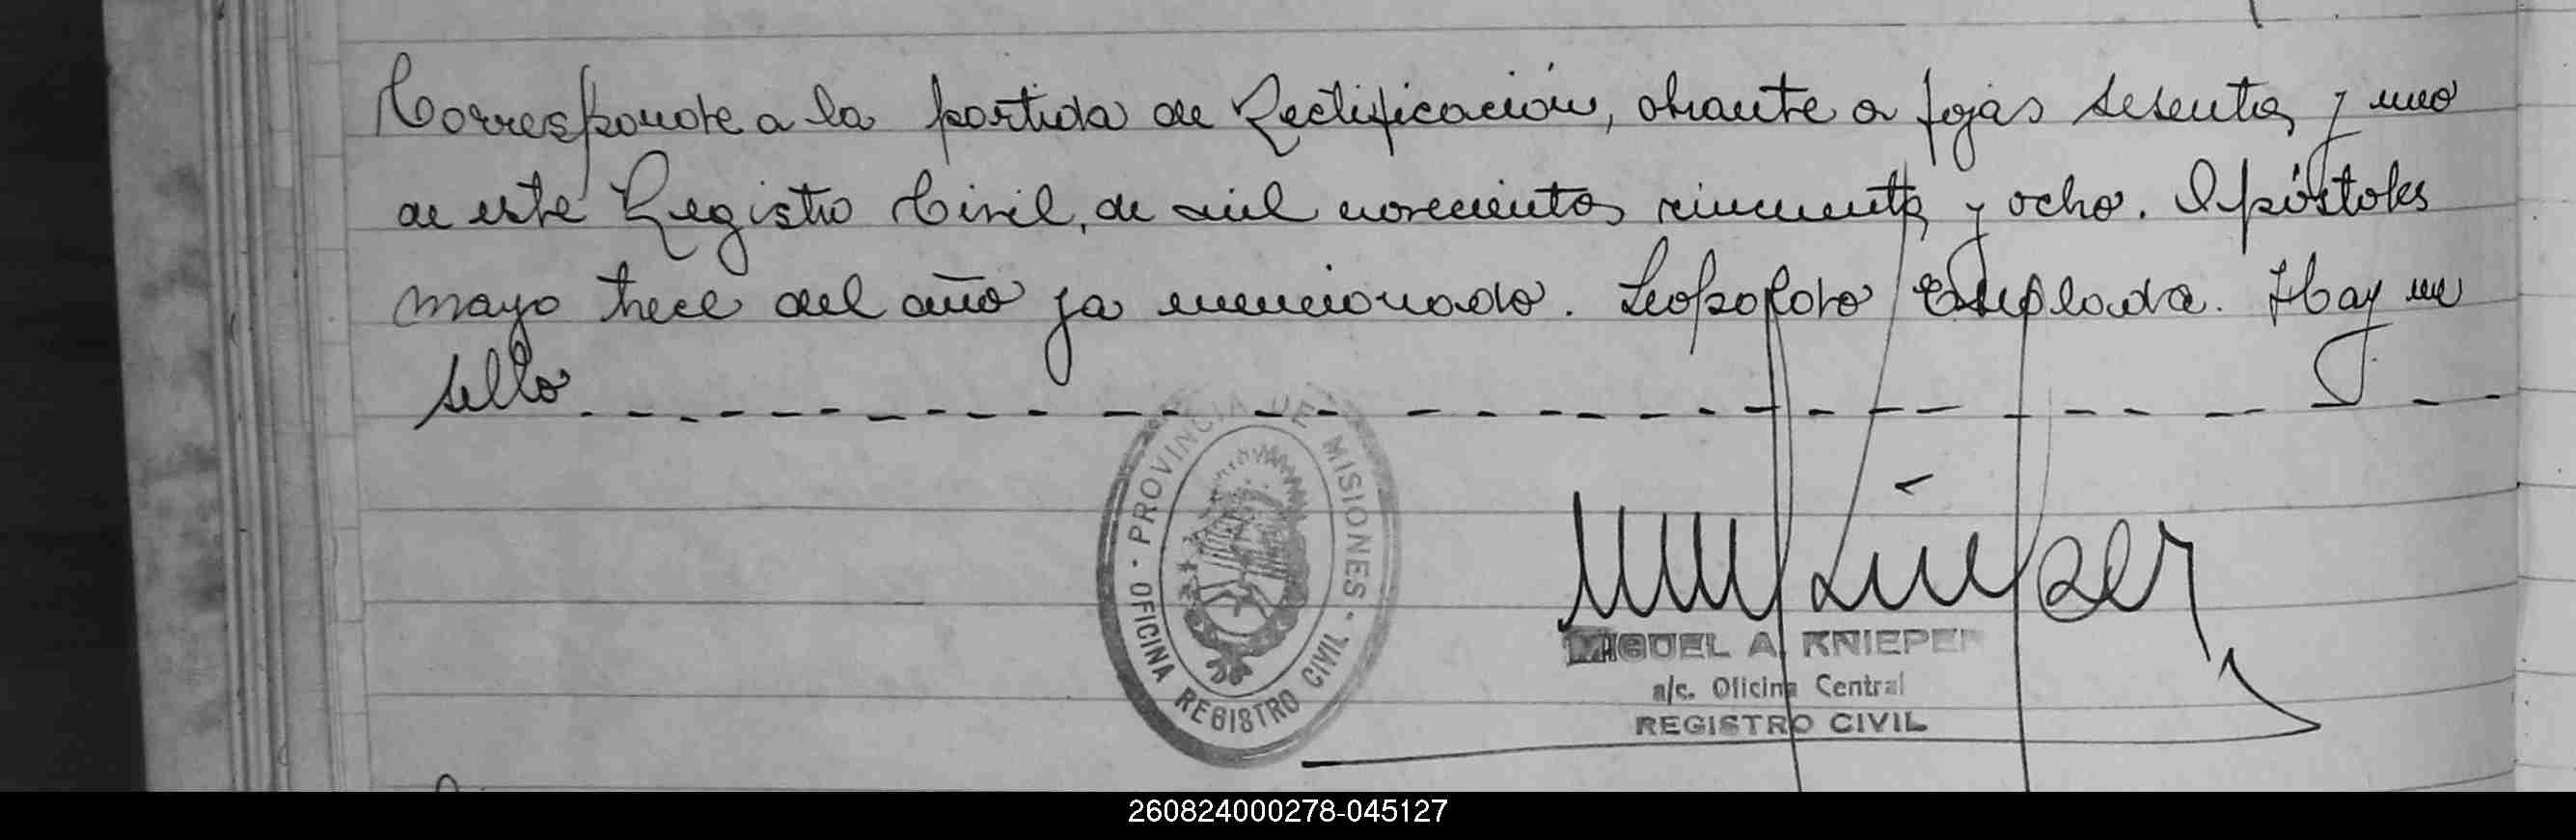 Corresponde a la partida de Rectificación, obrante a fojas sesenta y uno
de este Registro Civil, de mil novecientos cincuenta y ocho. Apóstoles
mayo trece del año ya mencionado. Leopoldo Esplada. Hay un
sello.
PROVINCIA DE MISIONES
OFICINA REGISTRO CIVIL
MIGUEL A. KNIEPER
a/c. Oficina Central
REGISTRO CIVIL
260824000278-045127